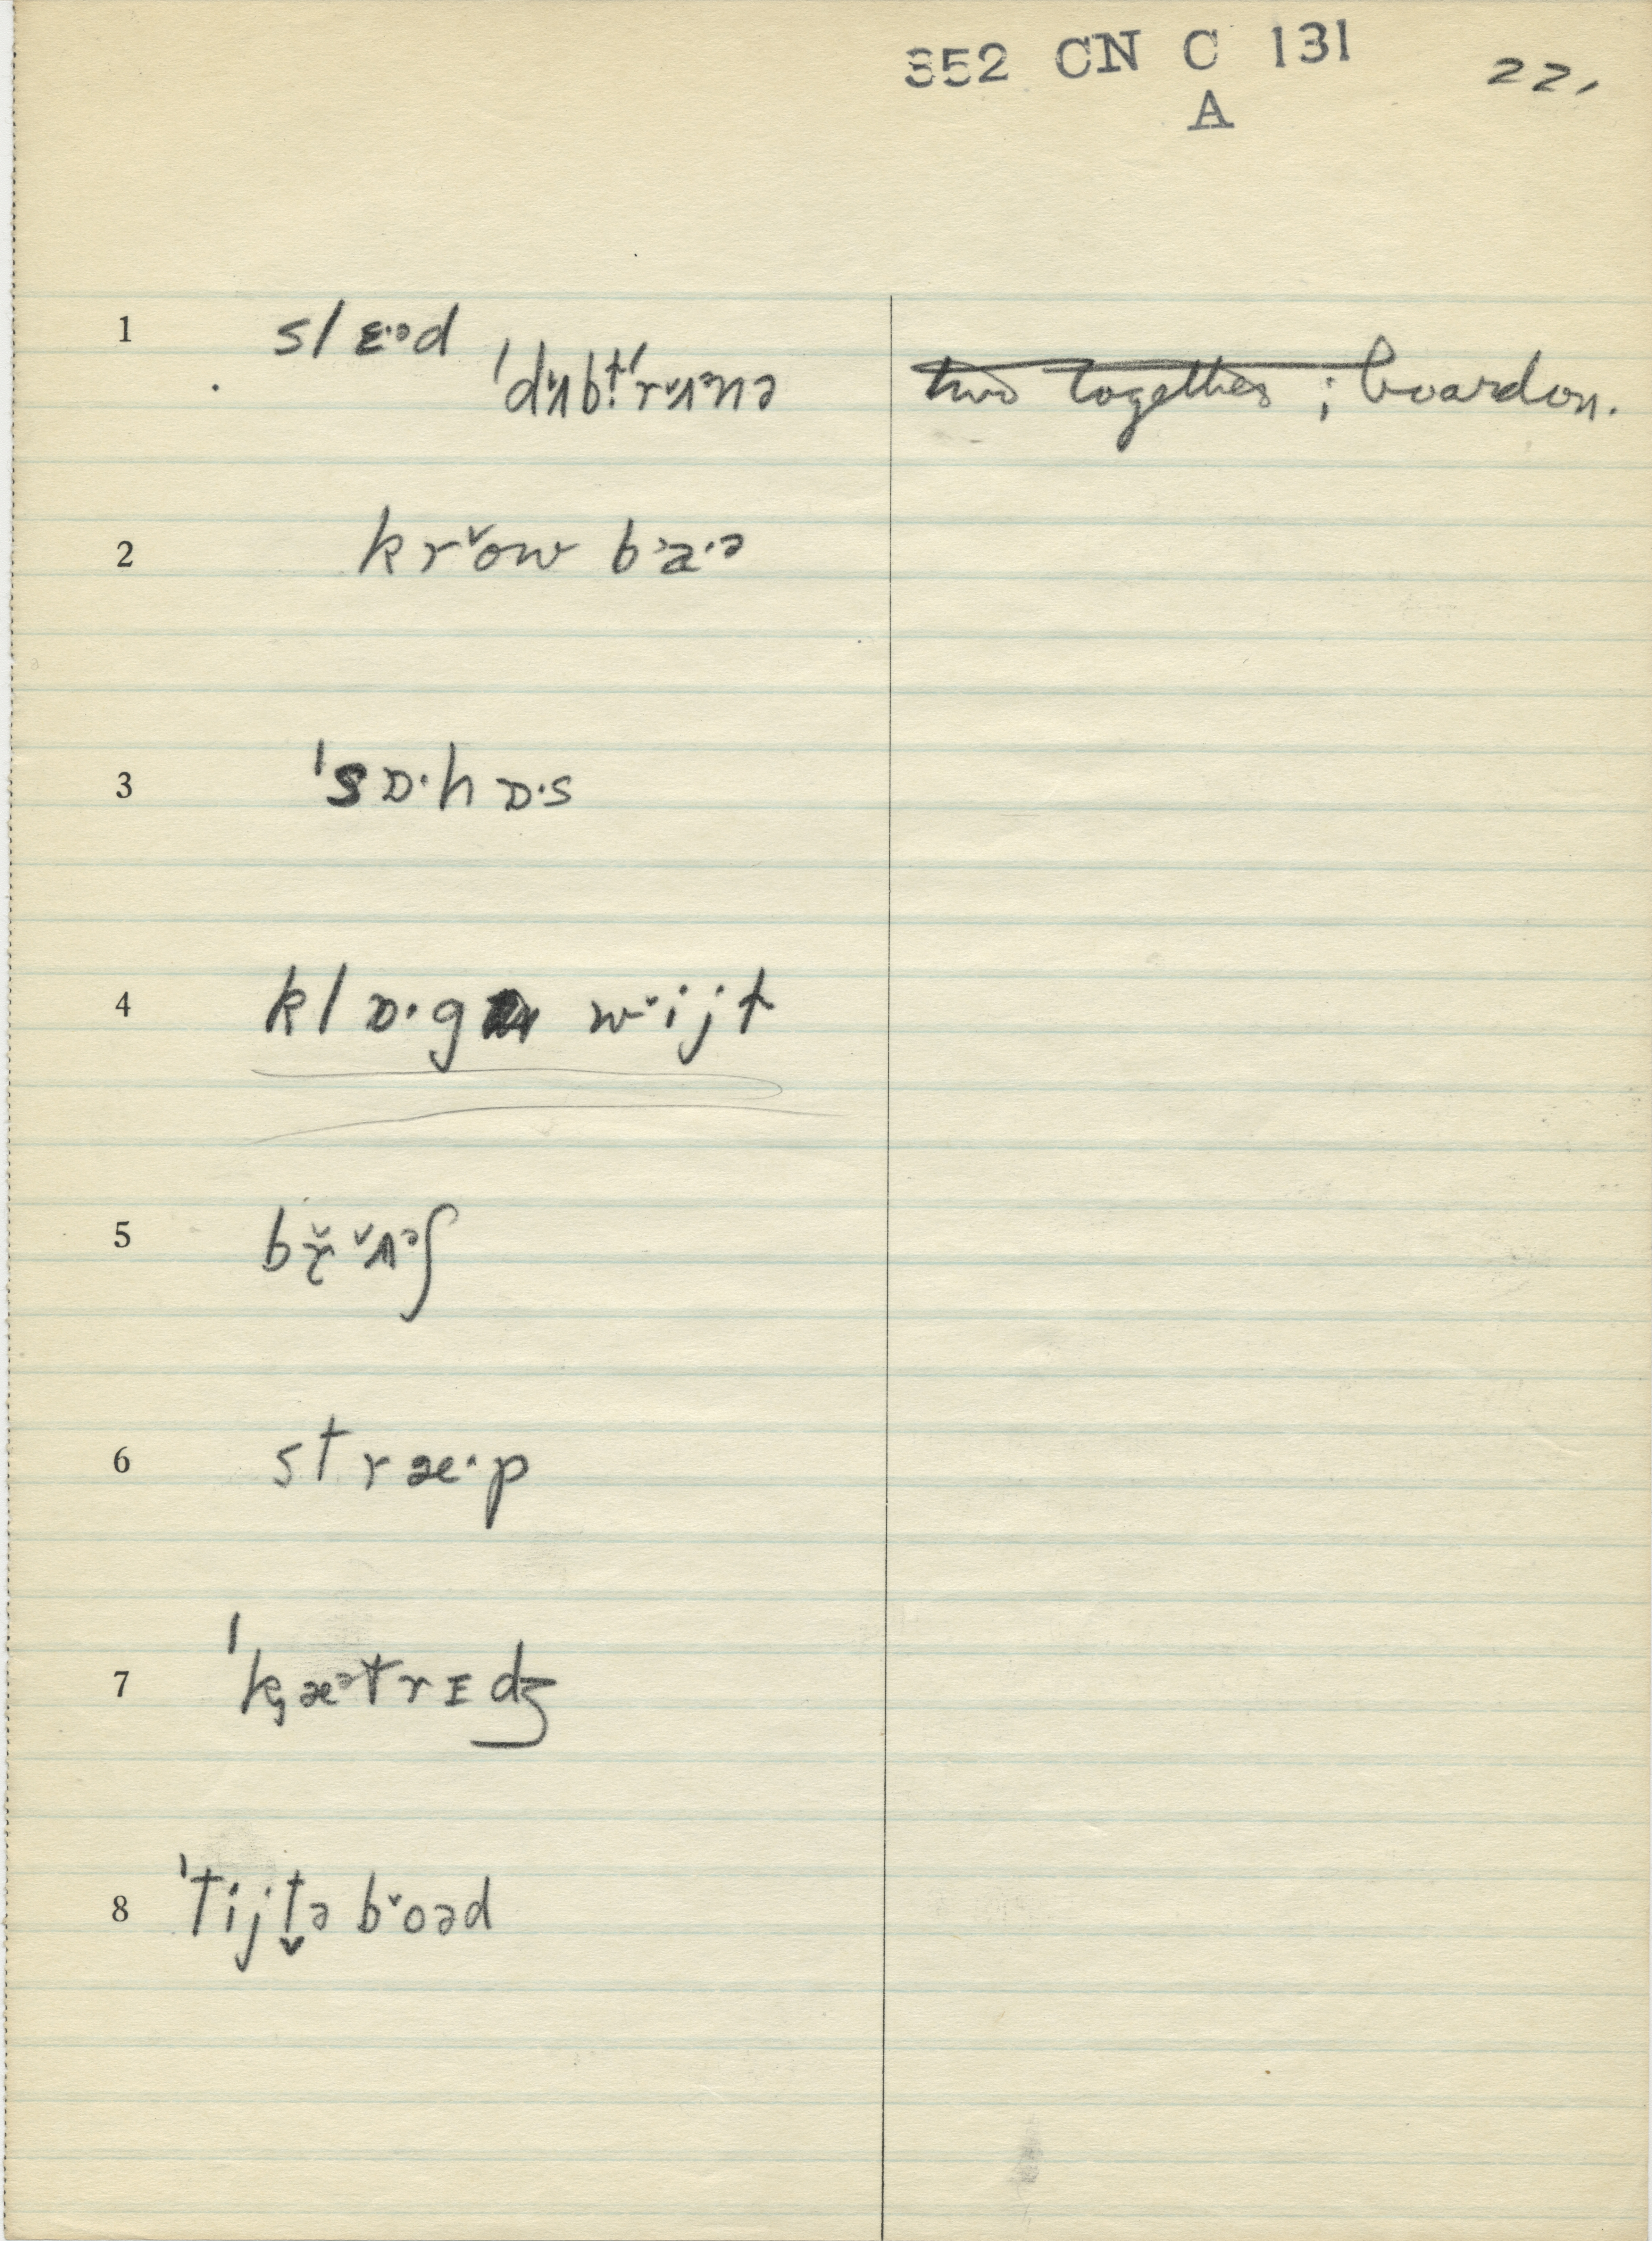 352 CN C 131 22,
A
1 slɛ·ᵊd
ˈdᵛʌbt̩ˈrᵛʌᵊnə two together; boardon.
2 krᵛow bᵊa·ᵊ
3 ˈsɒ·hɒ·s
4 klɒ·g wᵛijt
5 bř̨ᵛʌᵊʃ
6 stræ·p
7 ˈk̡æᵊtrɪdʒ
8 ˈtijt̬ə bᵛoəd